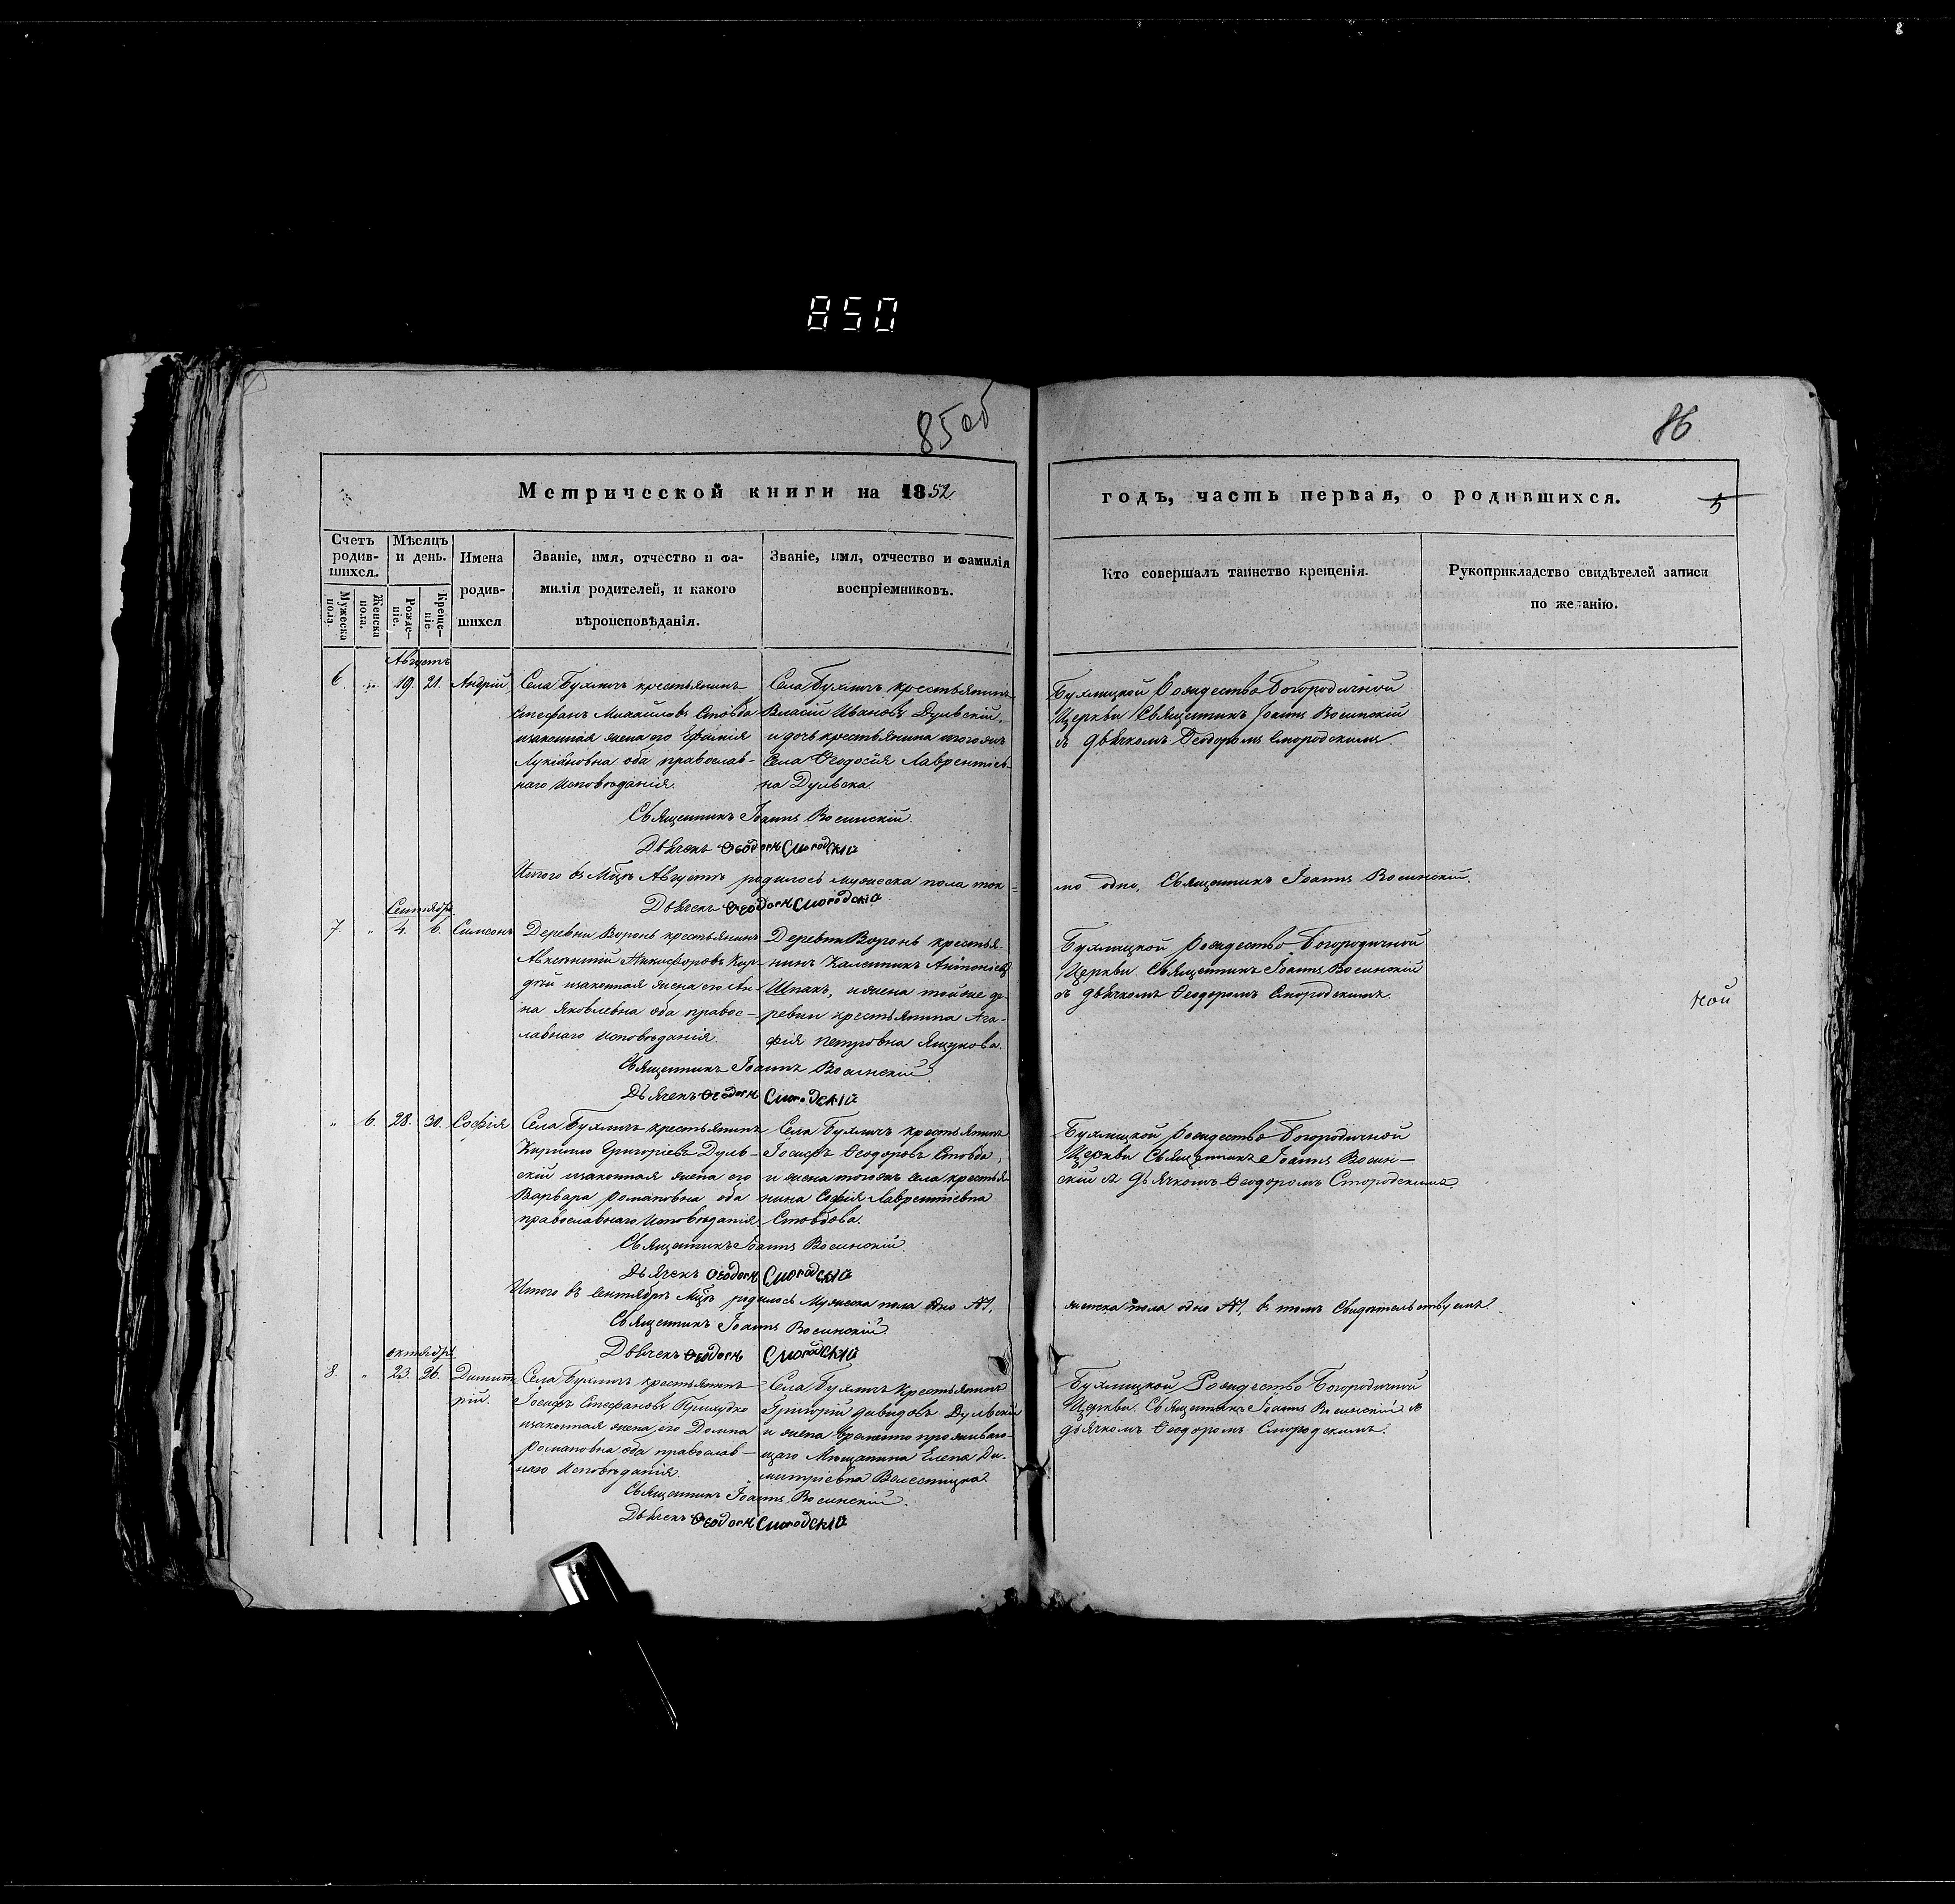 8
850
85об
86
Метрической книги на 1852
годъ, часть первая, о родившихся.
5
Счетъ родившихся.
Мужеска пола.
Женска пола.
Мѣсяцъ и день.
Рожденіе.
Крещеніе
Имена родившихся
Званіе, имя, отчество и фамилія родителей, и какого вѣроисповѣданія.
Званіе, имя, отчество и фамилія воспріемниковъ.
Кто совершалъ таинство крещенія.
Рукоприкладство свидѣтелей записи по желанію.
Августъ
6. „ 19. 21. Андрій
Села Бухличъ крестьянинъ
Стефанъ Михайловъ Стовба
изаконная жена его
Лукіановна оба православ-
наго исповѣданія.
Села Бухличъ крестьянинъ
Власій Ивановъ Дулвскій,
и дочь крестьянина тогожъ
Села Ѳеодосія Лаврентіев-
на Дулвска.
Бухлицкой Рождество Богородичной
Церкви Священникъ Іоаннъ Восинскій
съ дьячкомъ Ѳеодоромъ Смородскимъ.
Священникъ Іоаннъ Восинскій.
Дьячекъ Ѳеодоръ Смородскій
Итого въ Мцѣ Августѣ родилось мужеска пола ток-
мо одно, Священникъ Іоаннъ Восинскій.
Дьячекъ Ѳеодоръ Смородскій
Сентябрь
7. „ 4. 6. Симеонъ
Деревни Воронь крестьянинъ
Авксентій Никифоровъ Кур-
дѣй изаконная жена его Ан-
на Яковлевна оба правос-
лавнаго исповѣданія.
Деревни Воронь крестья-
нинъ Каленикъ Антоніевъ
Шпакъ, и жена тойже де-
ревни крестьянина Ага-
фія Петровна Ящукова.
Бухлицкой Рождество Богородичной
Церкви Священникъ Іоаннъ Восинскій
съ дьячкомъ Ѳеодоромъ Смородскимъ.
ной
Священникъ Іоаннъ Восинскій
Дьячекъ Ѳеодоръ Смородскій
„ 6. 28. 30. Софія
Села Бухличъ крестьянинъ
Кирилло Григоріевъ Дулв-
скій изаконная жена его
Варвара Романовна оба
православнаго исповѣданія.
Села Бухличъ крестьянинъ
Іосифъ Ѳеодоровъ Стовба,
и жена тогожъ села крестья-
нина Софія Лаврентіевна
Стовбова.
Бухлицкой Рождество Богородичной
Церкви Священникъ Іоаннъ Восин-
скій съ дьячкомъ Ѳеодоромъ Смородскимъ
Священникъ Іоаннъ Восинскій.
Дьячекъ Ѳеодоръ Смородскій
Итого въ Сентябрѣ Мцѣ родилось Мужеска пола одно №1,
женска пола одно №1, въ томъ Свидѣтельствуемъ.
Священникъ Іоаннъ Восинскій.
Дьячекъ Ѳеодоръ Смородскій
октябрь
8. „ 23. 26. Димит-
рій.
Села Бухличъ крестьянинъ
Іосифъ Стефановъ Прихудко
изаконная жена его Домна
Романовна оба православ-
наго исповѣданія.
Села Бухличъ крестьянинъ
Григорій Давидовъ Дулвскій
и жена временно проживаю-
щаго Мещанина Елена Ди-
митріевна Велесницка.
Бухлицкой Рождество Богородичной
Церкви. Священникъ Іоаннъ Восинскій съ
дьячкомъ Ѳеодоромъ Смородскимъ.
Священникъ Іоаннъ Восинскій.
Дьячекъ Ѳеодоръ Смородскій